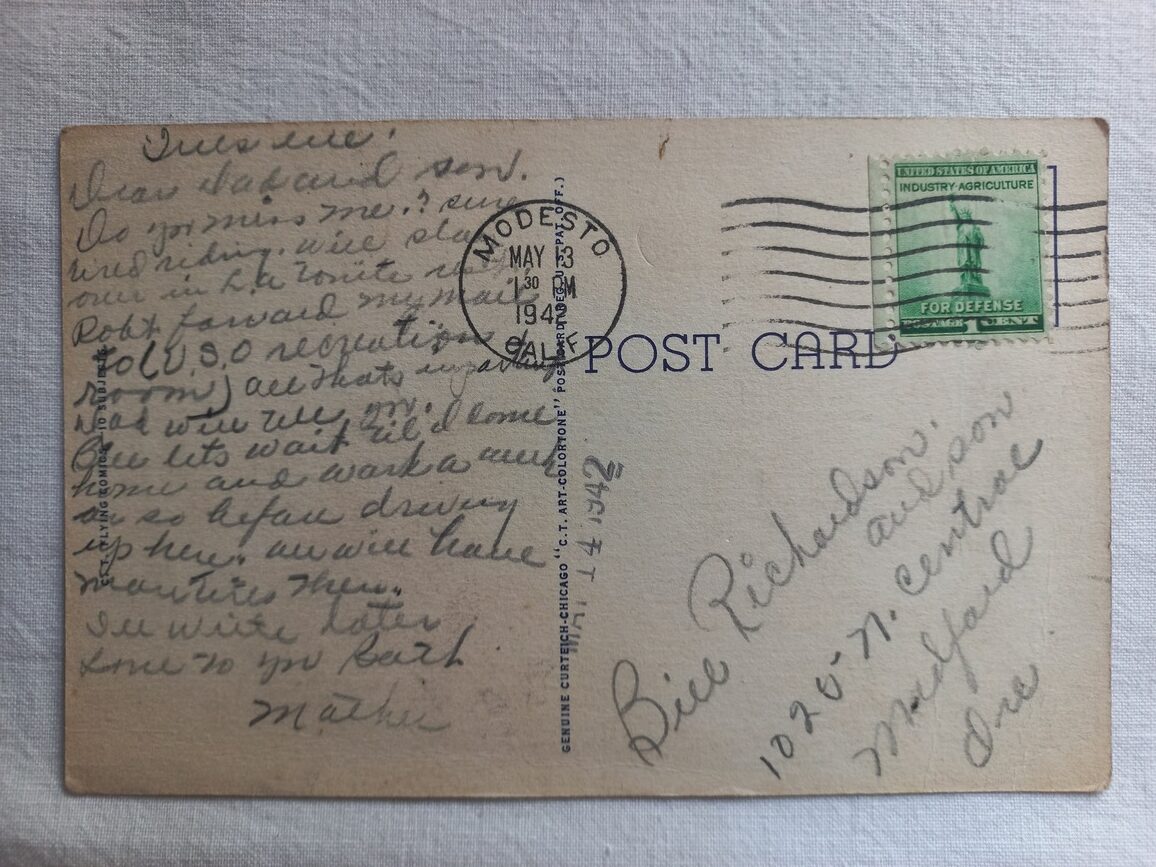 Tues eve.
Dear Dad and son.
Do you miss me.? sure
tired riding. will stay
over in L.A. tonite
Robt forward my mail
to (U.S.O recreation
room) all thats
Dad will
Bill lets wait til I come
home and work a week
or so before driving
up here. we will have
more tires then.
I'll write later
Love to you both
Mother
C.T. FLYING KOMICS—10 SUBJECTS
GENUINE CURTEICH-CHICAGO "C.T. ART-COLORTONE" POST CARD (REG. U.S. PAT. OFF.)
MODESTO
MAY 13
1 30 PM
1942
CALIF.
MAY 14 1942
POST CARD
UNITED STATES OF AMERICA
INDUSTRY·AGRICULTURE
FOR DEFENSE
POSTAGE 1 CENT
Bill Richardson.
and son
1020 N. Central
Medford
Ore